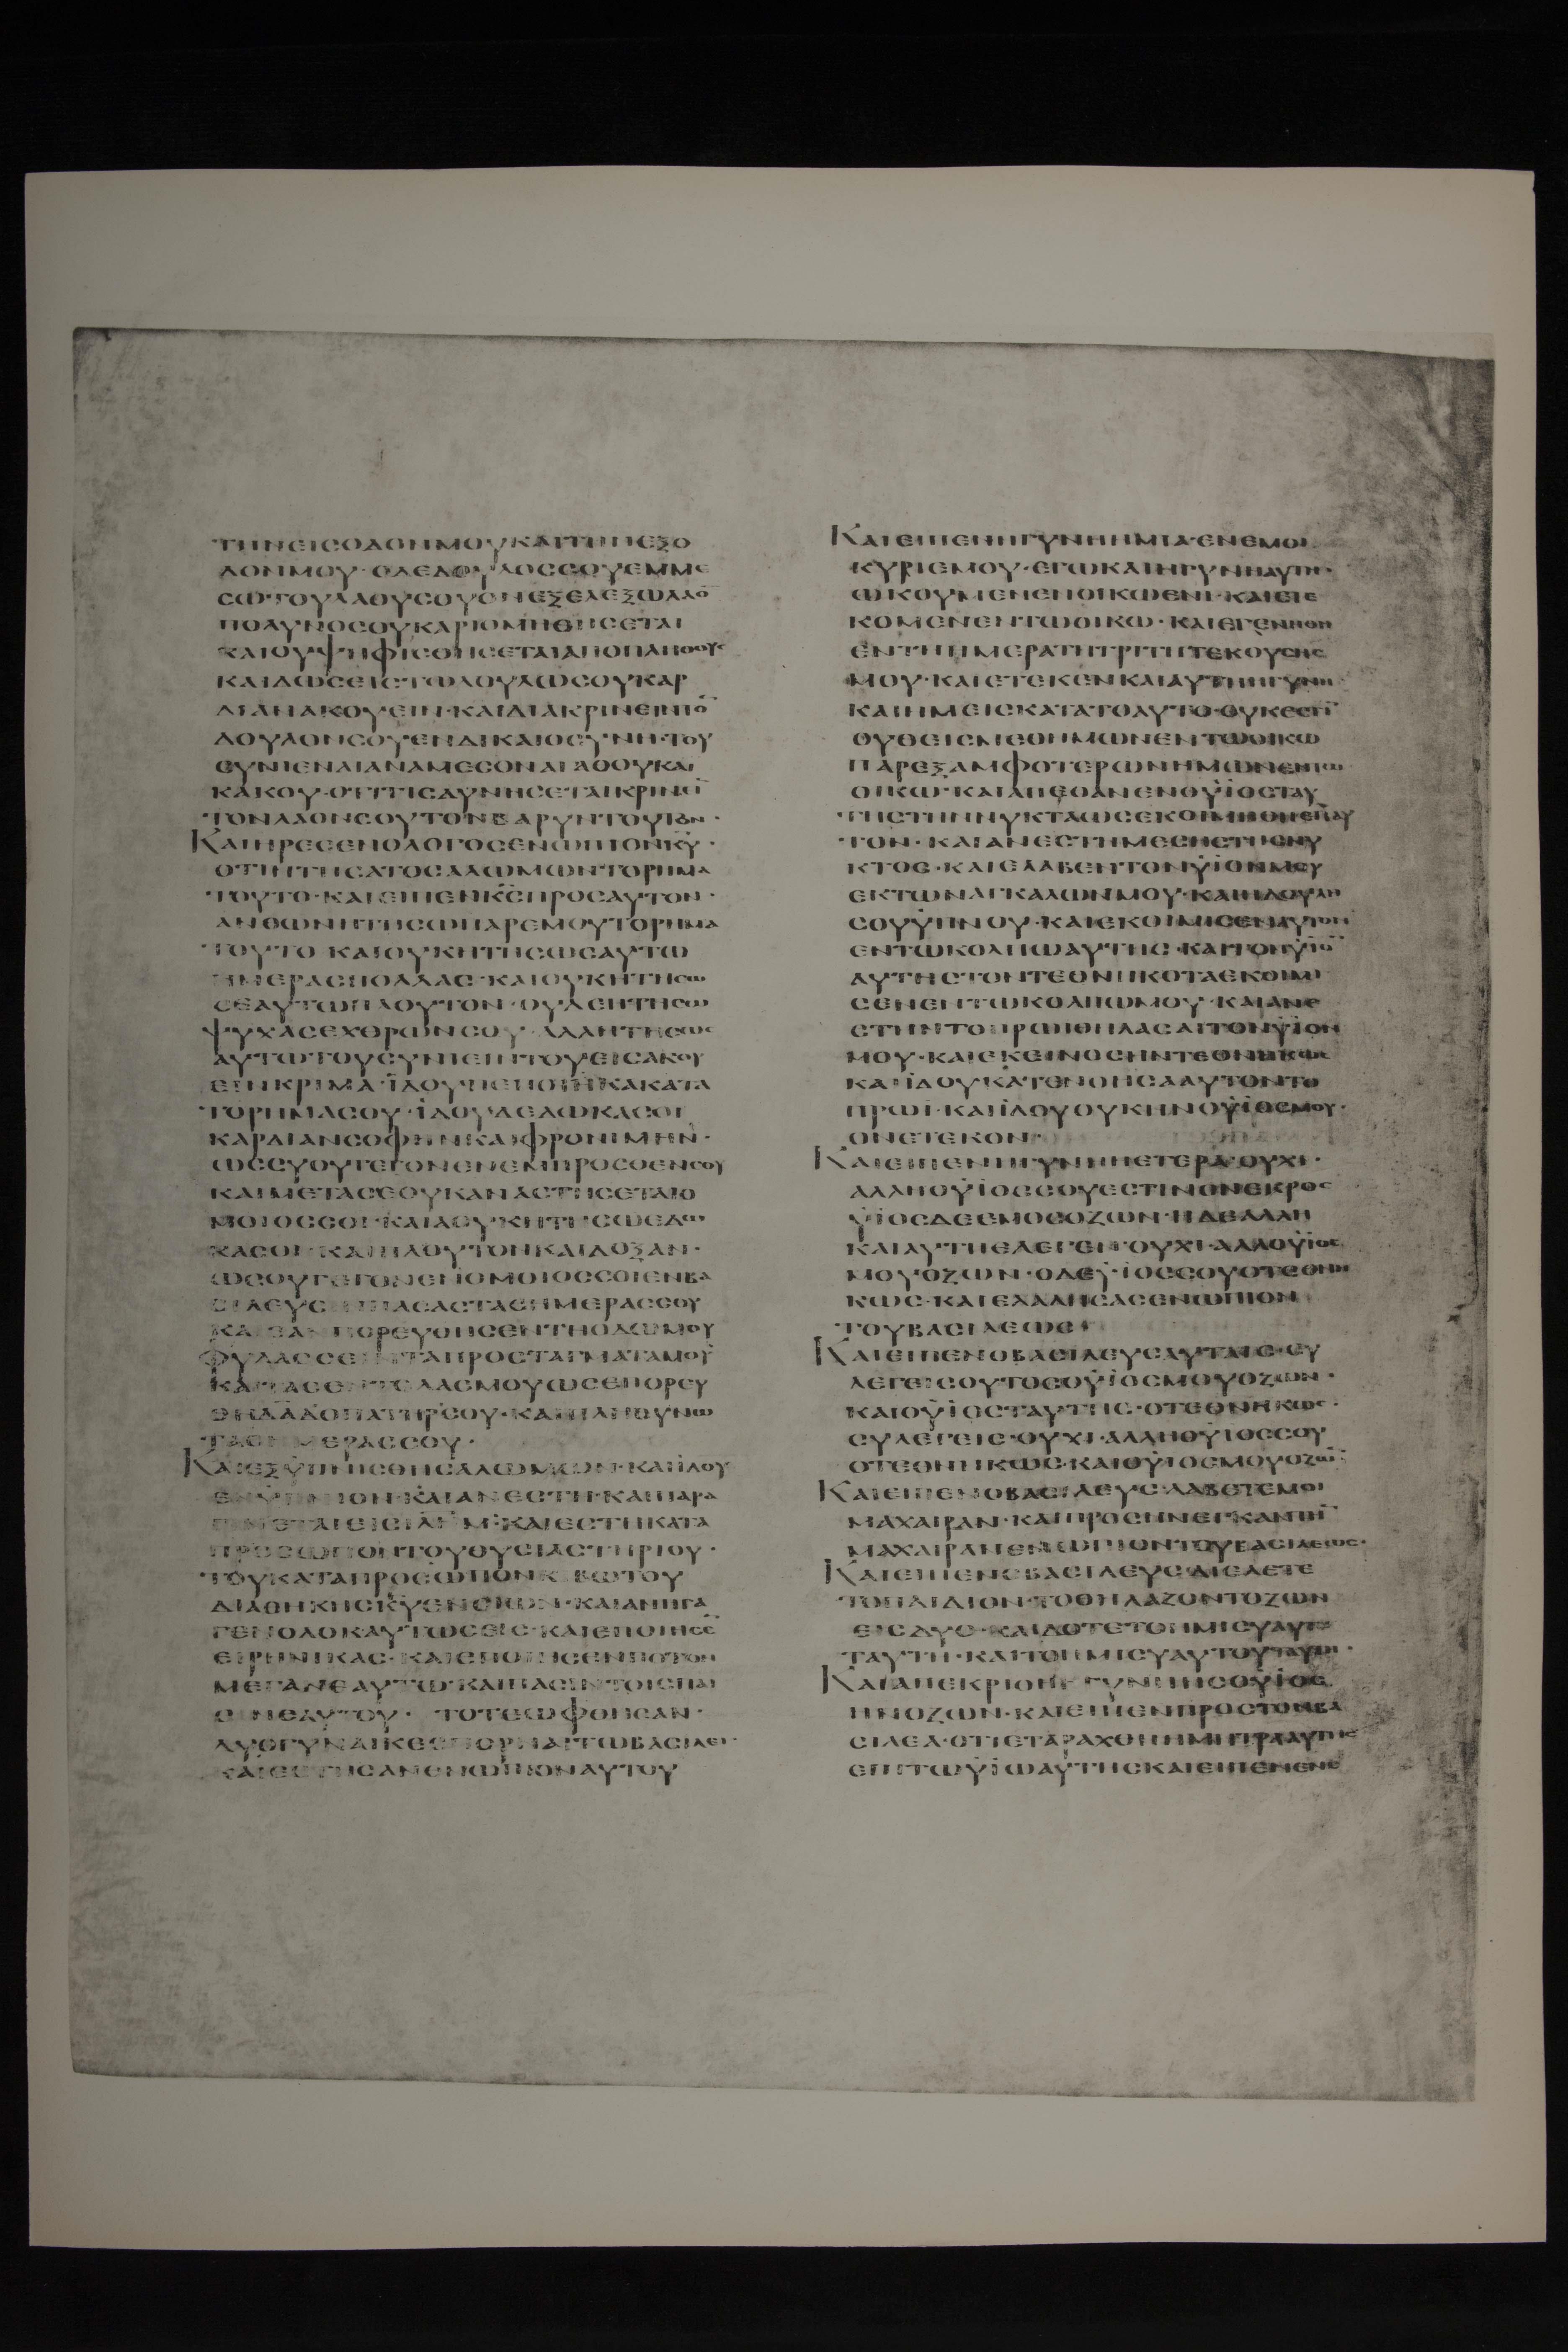 ΤΗΝΕΙϹΟΔΟΝΜΟΥΚΑΙΤΗΝΕΞΟ
ΔΟΝΜΟΥ·ΟΔΕΔΟΥΛΟϹϹΟΥΕΜΜΕ
ϹΩ·ΤΟΥΛΑΟΥϹΟΥΟΝΕΞΕΛΕΞΩΛΑΟ̅
ΠΟΛΥΝΟϹΟΥΚΑΡΙΘΜΗΘΗϹΕΤΑΙ
ΚΑΙΟΥΨΗΦΙϹΘΗϹΕΤΑΙΑΠΟΠΛΗΘΟΥϹ
ΚΑΙΔΩϹΕΙϹΤΩΔΟΥΛΩϹΟΥΚΑΡ
ΔΙΑΝΑΚΟΥΕΙΝ·ΚΑΙΔΙΑΚΡΙΝΕΙΝΤΟ̅
ΛΟΥΛΟΝϹΟΥΕΝΔΙΚΑΙΟϹΥΝΗ·ΤΟΥ
ϹΥΝΙΕΝΑΙΑΝΑΜΕϹΟΝΑΓΑΘΟΥΚΑΙ
ΚΑΚΟΥ·ΟΤΙΤΙϹΔΥΝΗϹΕΤΑΙΚΡΙΝΕΙ̅
ΤΟΝΛΑΟΝϹΟΥΤΟΝΒΑΡΥΝΤΟΥΤΟΝ·
ΚΑΙΗΡΕϹΕΝΟΛΟΓΟϹΕΝΩΠΙΟΝΚ̅Υ̅·
ΟΤΙΗΤΗϹΑΤΟϹΑΛΩΜΩΝΤΟΡΗΜΑ
ΤΟΥΤΟ·ΚΑΙΕΙΠΕΝΚ̅Ϲ̅ΠΡΟϹΑΥΤΟΝ·
ΑΝΘΩΝΗΤΗϹΩΠΑΡΕΜΟΥΤΟΡΗΜΑ
ΤΟΥΤΟ ΚΑΙΟΥΚΗΤΗϹΩϹΑΥΤΩ
ΗΜΕΡΑϹΠΟΛΛΑϹ·ΚΑΙΟΥΚΗΤΗϹΩ
ϹΕΑΥΤΩΠΛΟΥΤΟΝ·ΟΥΔΕΗΤΗϹΩ
ΨΥΧΑϹΕΧΘΡΩΝϹΟΥ·ΑΛΛΗΤΗϹΩϹ
ΑΥΤΩΤΟΥϹΥΝΙΕΙΝΤΟΥΕΙϹΑΚΟΥ
ΕΙΝΚΡΙΜΑ·ΪΔΟΥΠΕΠΟΙΗΚΑΚΑΤΑ
ΤΟΡΗΜΑϹΟΥ·ΪΔΟΥΔΕΔΩΚΑϹΟΙ
ΚΑΡΔΙΑΝϹΟΦΗΝΚΑΙΦΡΟΝΙΜΗΝ·
ΩϹϹΥΟΥΓΕΓΟΝΕΝΕΜΠΡΟϹΘΕΝϹΟΥ
ΚΑΙΜΕΤΑϹΕΟΥΚΑΝΑϹΤΗϹΕΤΑΙΟ
ΜΟΙΟϹϹΟΙ·ΚΑΙΑΟΥΚΗΤΗϹΩΕΔΩ
ΚΑϹΟΙ·ΚΑΙΠΛΟΥΤΟΝΚΑΙΔΟΞΑΝ·
ΩϹΟΥΓΕΓΟΝΕΝΟΜΟΙΟϹϹΟΙΕΝΒΑ
ϹΙΛΕΥϹΙΝΠΑϹΑϹΤΑϹΗΜΕΡΑϹϹΟΥ
ΚΑΙΕΑΝΠΟΡΕΥΘΗϹΕΝΤΗΟΔΩΜΟΥ
ΦΥΛΑϹϹΕΙΝΤΑΠΡΟϹΤΑΓΜΑΤΑΜΟΥ
ΚΑΙΤΑϹΕΝΤΟΛΑϹΜΟΥΩϹΕΠΟΡΕΥ
ΘΗΔ̅Α̅Δ̅ΟΠΑΤΗΡϹΟΥ·ΚΑΙΠΛΗΘΥΝΩ
ΤΑϹΗΜΕΡΑϹϹΟΥ·
ΚΑΙΕΞΥΠΝΗϹΘΗϹΑΛΩΜΩΝ·ΚΑΙΪΔΟΥ
ΕΝΥΠΝΙΟΝ·ΚΑΙΑΝΕϹΤΗ·ΚΑΙΠΑΡΑ
ΓΙΝΕΤΑΙΕΙϹΙΛΗΜ·ΚΑΙΕϹΤΗΚΑΤΑ
ΠΡΟϹΩΠΟΝΤΟΥΘΥϹΙΑϹΤΗΡΙΟΥ·
ΤΟΥΚΑΤΑΠΡΟϹΩΠΟΝΚΙΒΩΤΟΥ
ΔΙΑΘΗΚΗϹΚ̅Υ̅ΕΝϹΙΩΝ·ΚΑΙΑΝΗΓΑ
ΓΕΝΟΛΟΚΑΥΤΩϹΕΙϹ·ΚΑΙΕΠΟΙΗϹΕ̅
ΕΙΡΗΝΙΚΑϹ·ΚΑΙΕΠΟΙΗϹΕΝΠΟΤΟΝ
ΜΕΓΑΝΕΑΥΤΩ·ΚΑΙΠΑϹΙΝΤΟΙϹΠΑΙ
ϹΙΝΕΑΥΤΟΥ· ΤΟΤΕΩΦΘΗϹΑΝ·
ΔΥΟΓΥΝΑΙΚΕϹΠΟΡΝΑΙΤΩΒΑϹΙΛΕΙ·
ΚΑΙΕϹΤΗϹΑΝΕΝΩΠΙΟΝΑΥΤΟΥ
ΚΑΙΕΙΠΕΝΗΓΥΝΗΗΜΙΑ·ΕΝΕΜΟΙ
ΚΥΡΙΕΜΟΥ·ΕΓΩΚΑΙΗΓΥΝΗΑΥΤΗ·
ΩΚΟΥΜΕΝΕΝΟΙΚΩΕΝΙ·ΚΑΙΕΤΕ
ΚΟΜΕΝΕΝΤΩΟΙΚΩ·ΚΑΙΕΓΕΝΗΘΗ
ΕΝΤΗΗΜΕΡΑΤΗΤΡΙΤΗΤΕΚΟΥϹΗϹ
ΜΟΥ·ΚΑΙΕΤΕΚΕΝΚΑΙΑΥΤΗΗΓΥΝΗ
ΚΑΙΗΜΕΙϹΚΑΤΑΤΟΑΥΤΟ·ΟΥΚΕϹΤΙ̅
ΟΥΘΕΙϹΜΕΘΗΜΩΝΕΝΤΩΟΙΚΩ
ΠΑΡΕΞΑΜΦΟΤΕΡΩΝΗΜΩΝΕΝΤΩ
ΟΙΚΩ·ΚΑΙΑΠΕΘΑΝΕΝΟΫΪΟϹΤΑΥ
ΤΗϹΤΗΝΝΥΚΤΑΩϹΕΚΟΙΜΗΘΗΕΠΑΥ
ΤΟΝ·ΚΑΙΑΝΕϹΤΗΜΕϹΗϹΤΗϹΝΥ
ΚΤΟϹ·ΚΑΙΕΛΑΒΕΝΤΟΝΫΪΟΝΜΟΥ
ΕΚΤΩΝΑΓΚΑΛΩΝΜΟΥ·ΚΑΙΗΔΟΥΛΗ
ϹΟΥΫΠΝΟΥ·ΚΑΙΕΚΟΙΜΙϹΕΝΑΥΤΟΝ
ΕΝΤΩΚΟΛΠΩΑΥΤΗϹ·ΚΑΙΤΟΝΫΪΟ̅
ΑΥΤΗϹΤΟΝΤΕΘΝΗΚΟΤΑΕΚΟΙΜΙ
ϹΕΝΕΝΤΩΚΟΛΠΩΜΟΥ·ΚΑΙΑΝΕ
ϹΤΗΝΤΟΠΡΩΙΘΗΛΑϹΑΙΤΟΝΫΪΟΝ
ΜΟΥ·ΚΑΙΕΚΕΙΝΟϹΗΝΤΕΘΝΗΚΩϹ
ΚΑΙΪΔΟΥΚΑΤΕΝΟΗϹΑΑΥΤΟΝΤΟ
ΠΡΩΪ·ΚΑΙΪΔΟΥΟΥΚΗΝΟΫΪΟϹΜΟΥ·
ΟΝΕΤΕΚΟΝ
ΚΑΙΕΙΠΕΝΗΓΥΝΗΗΕΤΕΡΑ·ΟΥΧΙ·
ΑΛΛΗΟΫΪΟϹϹΟΥΕϹΤΙΝΟΝΕΚΡΟϹ
ΫΪΟϹΔΕΕΜΟϹΟΖΩΝ·ΗΔΕΑΛΛΗ
ΚΑΙΑΥΤΗΕΛΕΓΕΝ·ΟΥΧΙ·ΑΛΛΟΫΪΟϹ
ΜΟΥΟΖΩΝ·ΟΔΕΫΪΟϹϹΟΥΟΤΕΘΝΗ
ΚΩϹ·ΚΑΙΕΛΑΛΗϹΑϹΕΝΩΠΙΟΝ
ΤΟΥΒΑϹΙΛΕΩϹ
ΚΑΙΕΙΠΕΝΟΒΑϹΙΛΕΥϹΑΥΤΑΙϹ·ϹΥ
ΛΕΓΕΙϹΟΥΤΟϹΟΫΪΟϹΜΟΥΟΖΩΝ·
ΚΑΙΟΫΪΟϹΤΑΥΤΗϹ·ΟΤΕΘΝΗΚΩϹ·
ϹΥΛΕΓΕΙϹ·ΟΥΧΙ·ΑΛΛΗΟΫΪΟϹϹΟΥ
ΟΤΕΘΝΗΚΩϹ·ΚΑΙΟΫΪΟϹΜΟΥΟΖΩ̅
ΚΑΙΕΙΠΕΝΟΒΑϹΙΛΕΥϹ·ΛΑΒΕΤΕΜΟΙ
ΜΑΧΑΙΡΑΝ·ΚΑΙΠΡΟϹΗΝΕΓΚΑΝΤΗ̅
ΜΑΧΑΙΡΑΝΕΝΩΠΙΟΝΤΟΥΒΑϹΙΛΕΩϹ·
ΚΑΙΕΙΠΕΝΟΒΑϹΙΛΕΥϹ·ΔΙΕΛΕΤΕ
ΤΟΠΑΙΔΙΟΝ·ΤΟΘΗΛΑΖΟΝΤΟΖΩΝ
ΕΙϹΔΥΟ·ΚΑΙΔΟΤΕΤΟΗΜΙϹΥΑΥΤΟΥ
ΤΑΥΤΗ·ΚΑΙΤΟΗΜΙϹΥΑΥΤΟΥΤΑΥΤΗ·
ΚΑΙΑΠΕΚΡΙΘΗΗΓΥΝΗΗϹΟΫΪΟϹ
ΗΝΟΖΩΝ·ΚΑΙΕΙΠΕΝΠΡΟϹΤΟΝΒΑ
ϹΙΛΕΑ·ΟΤΙΕΤΑΡΑΧΘΗΗΜΗΤΡΑΑΥΤΗϹ
ΕΠΙΤΩΫΪΩΑΥΤΗϹΚΑΙΕΙΠΕΝΕΝΕ